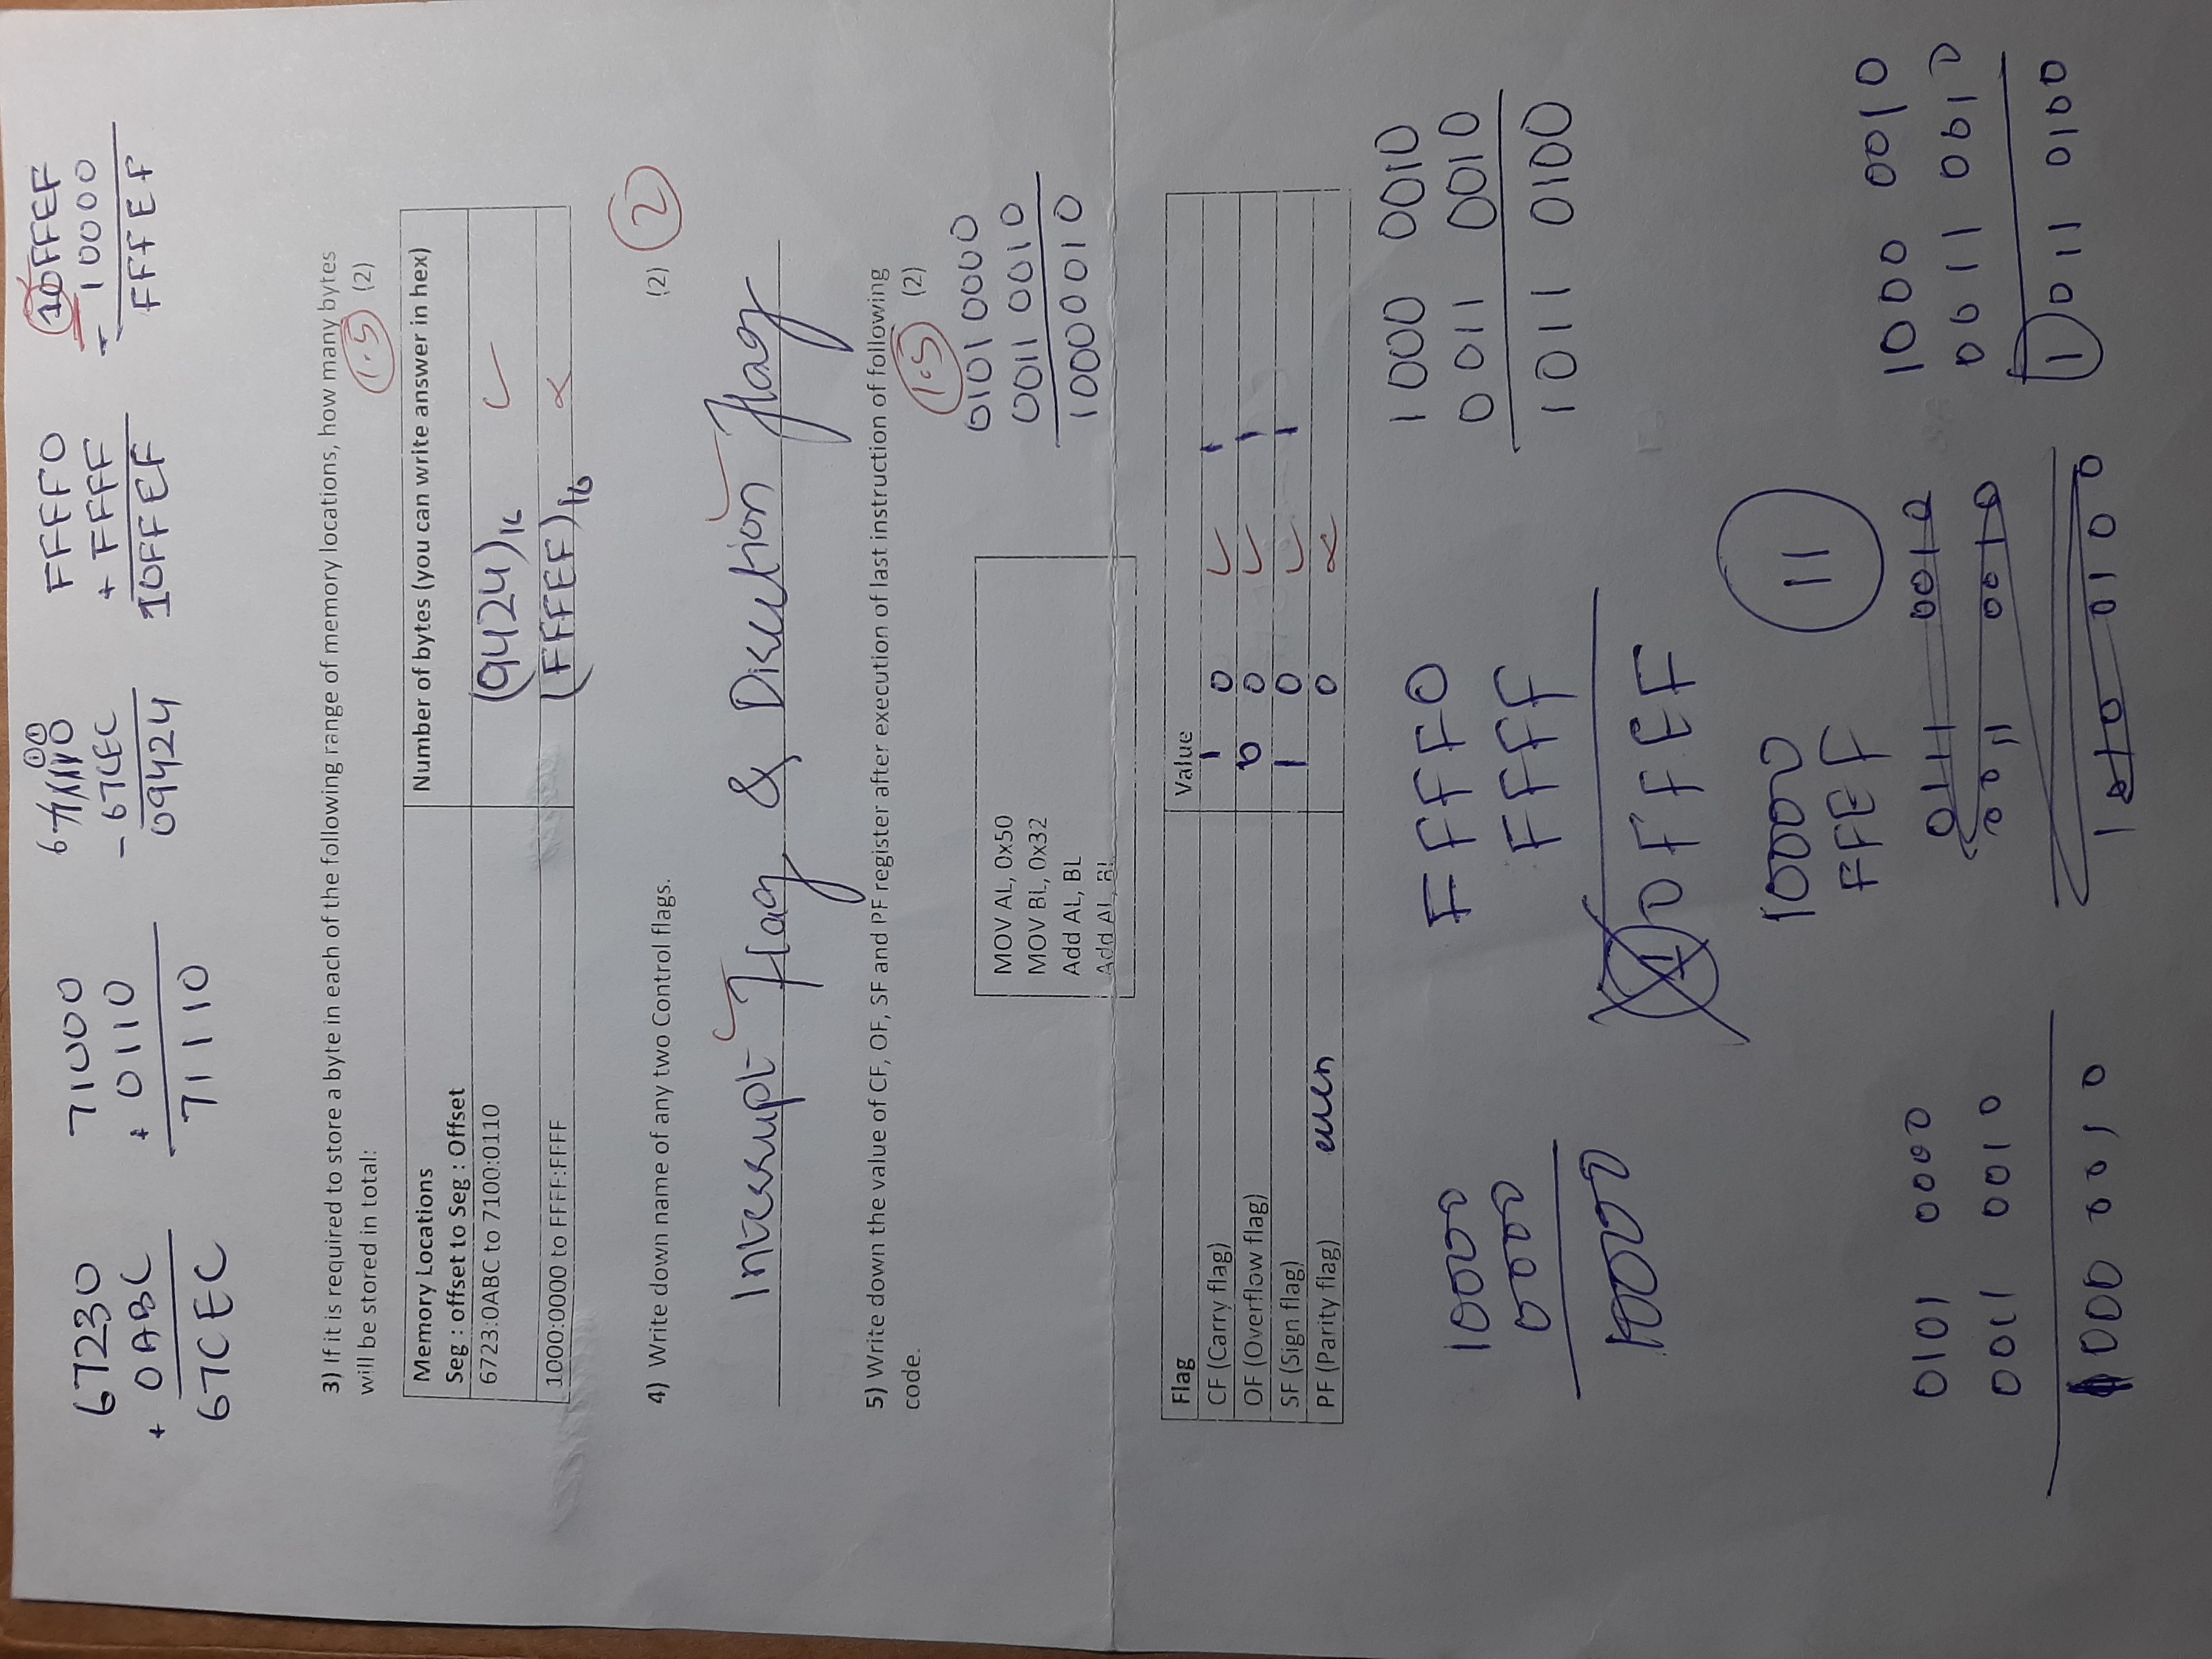 67230
+ 0ABC
67CEC
71000
+ 0110
71110
- 67CEC
09424
FFFF0
+ FFFF
10FFEF
10FFEF
- 10000
FFFEF
3) If it is required to store a byte in each of the following range of memory locations, how many bytes
will be stored in total:
1.5 (2)
Memory Locations
Seg : offset to Seg : Offset
Number of bytes (you can write answer in hex)
6723:0ABC to 7100:0110
(9424)16
1000:0000 to FFFF:FFFF
(FFFEF)16
4) Write down name of any two Control flags.
(2) 2
Interrupt Flag & Direction Flag
5) Write down the value of CF, OF, SF and PF register after execution of last instruction of following
code.
1.5 (2)
MOV AL, 0x50
MOV BL, 0x32
Add AL, BL
Add AL, BL
01010000
0011 0010
10000010
Flag Value
CF (Carry flag) 1 0 1
OF (Overflow flag) 0 0 1
SF (Sign flag) 1 0 1
PF (Parity flag) even 0
10000
0000
10000
FFFF0
FFFF
10FFEF
1000 0010
0011 0010
1011 0100
10000
FFEF
11
0101 0000
0011 0010
1000 0010
0111 0010
0011 0010
1010 0100
1000 0010
0011 0010
1 011 0100